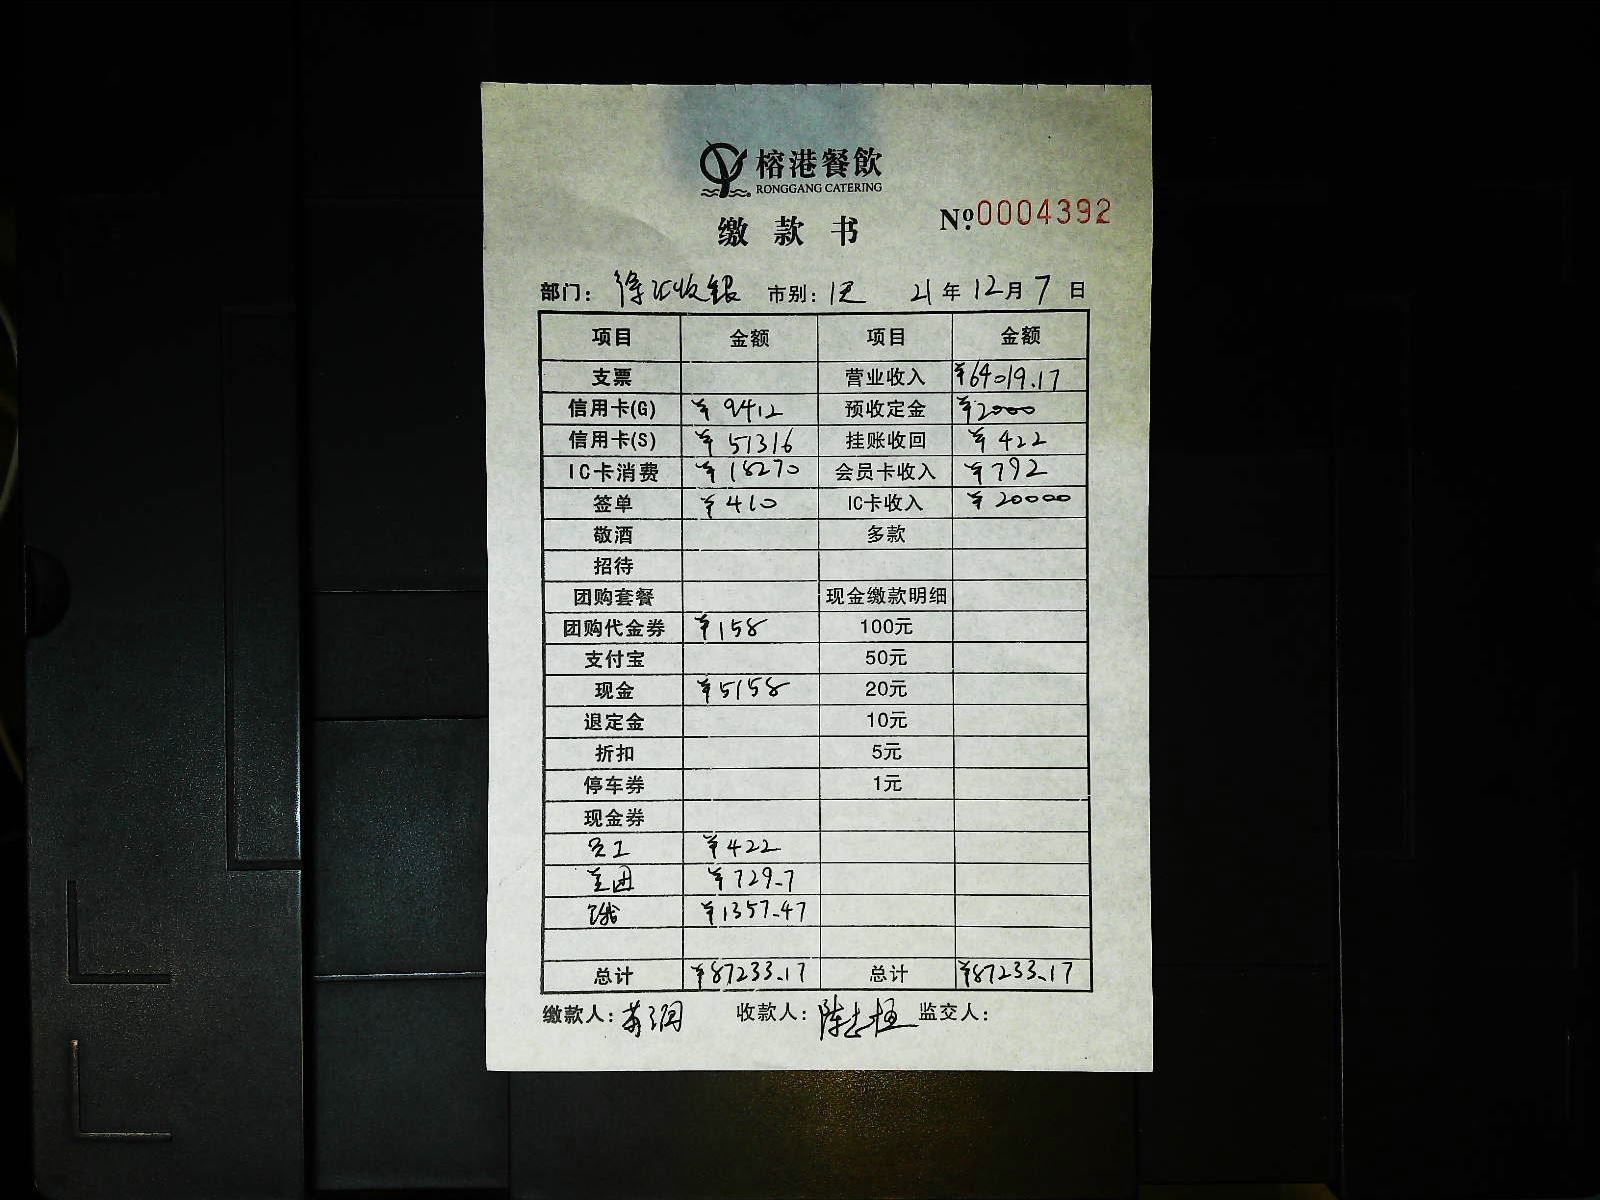 榕港餐飲
RONGGANG CATERING
缴款书 №0004392
部门: 徐汇收银 市别: 21年12月7日
项目 金额 项目 金额
支票 营业收入 ¥64019.17
信用卡(G) ¥9412 预收定金 ¥2000
信用卡(S) ¥51316 挂账收回 ¥422
IC卡消费 ¥18270 会员卡收入 ¥792
签单 ¥410 IC卡收入 ¥20000
敬酒 多款
招待
团购套餐 现金缴款明细
团购代金券 ¥158 100元
支付宝 50元
现金 ¥5158 20元
退定金 10元
折扣 5元
停车券 1元
现金券
员工 ¥422
美团 ¥729.7
饿 ¥1357.47
总计 ¥87233.17 总计 ¥87233.17
缴款人: 收款人: 监交人: